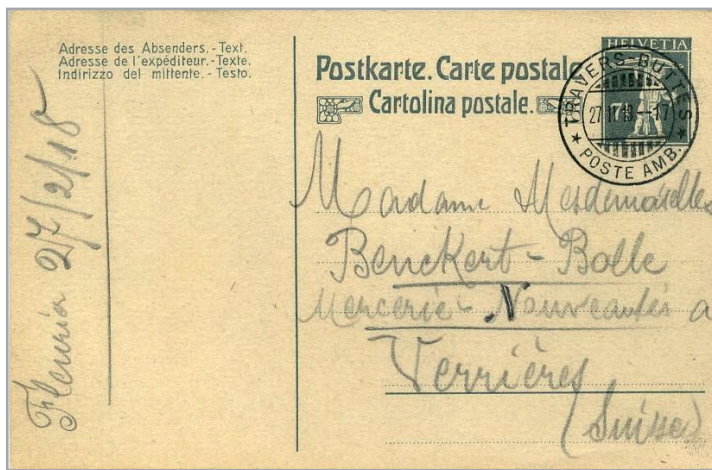 Adresse des Absenders. - Text.
Adresse de l'expéditeur. - Texte.
Indirizzo del mittente. - Testo.
Postkarte. Carte postale
Cartolina postale.
HELVETIA
TRAVERS-BUTTES
27 II 18 - 17
7½
* POSTE AMB. *
Madame Mesdemoiselles
Benckert-Bolle
Mercerie-Nouveautés a
Verrières
(Suisse)
Fleurier 27/2/18